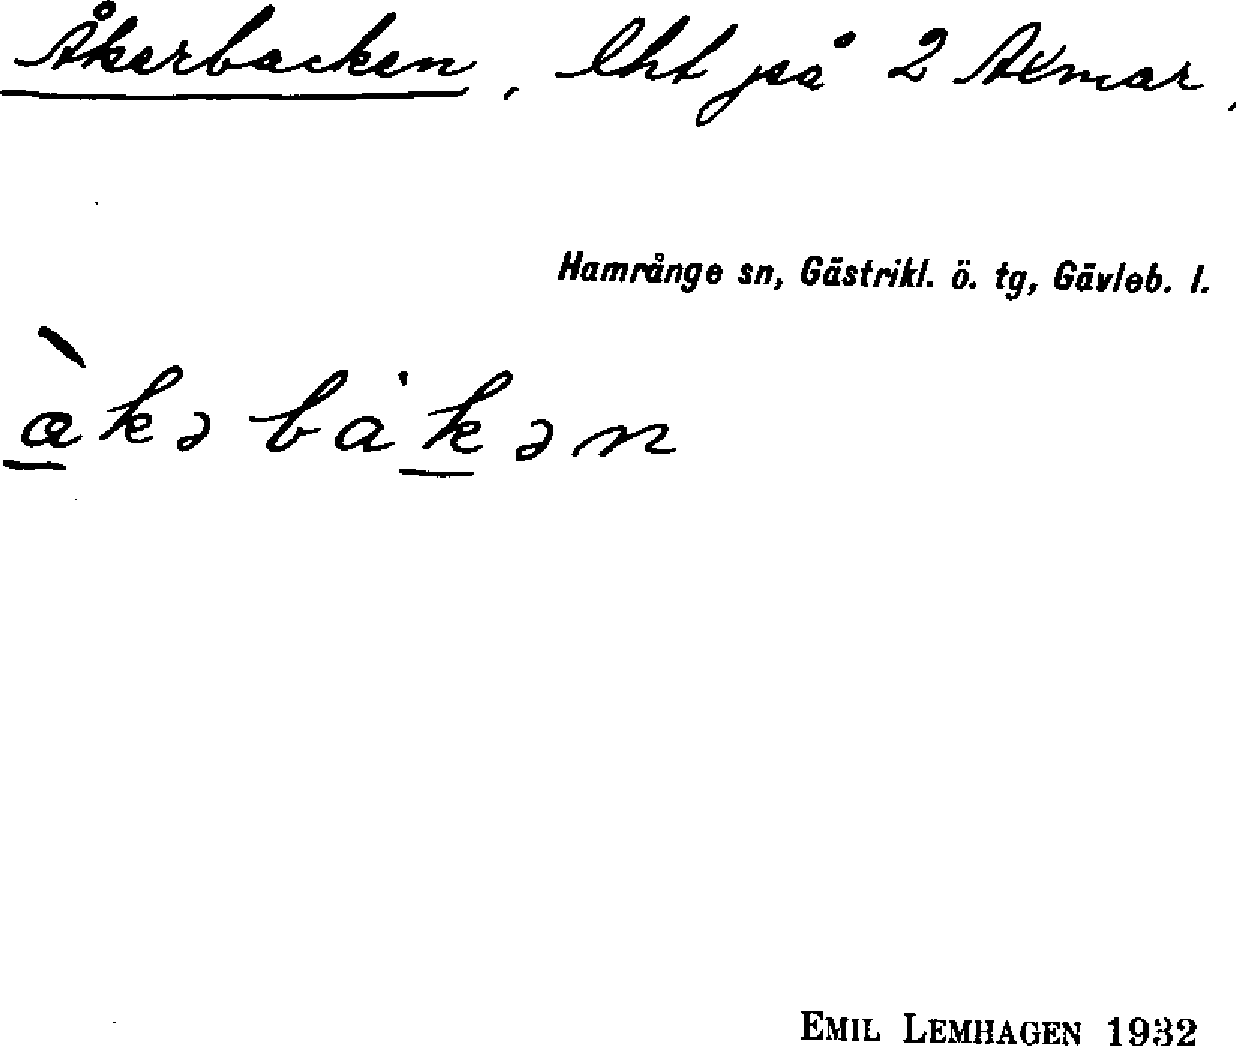 Åkerbacken, lht på 2 Axmar.
Hamrånge sn, Gästrikl. ö. tg, Gävleb. l.
œ̱̀kə bȧḵən
EMIL LEMHAGEN 1932